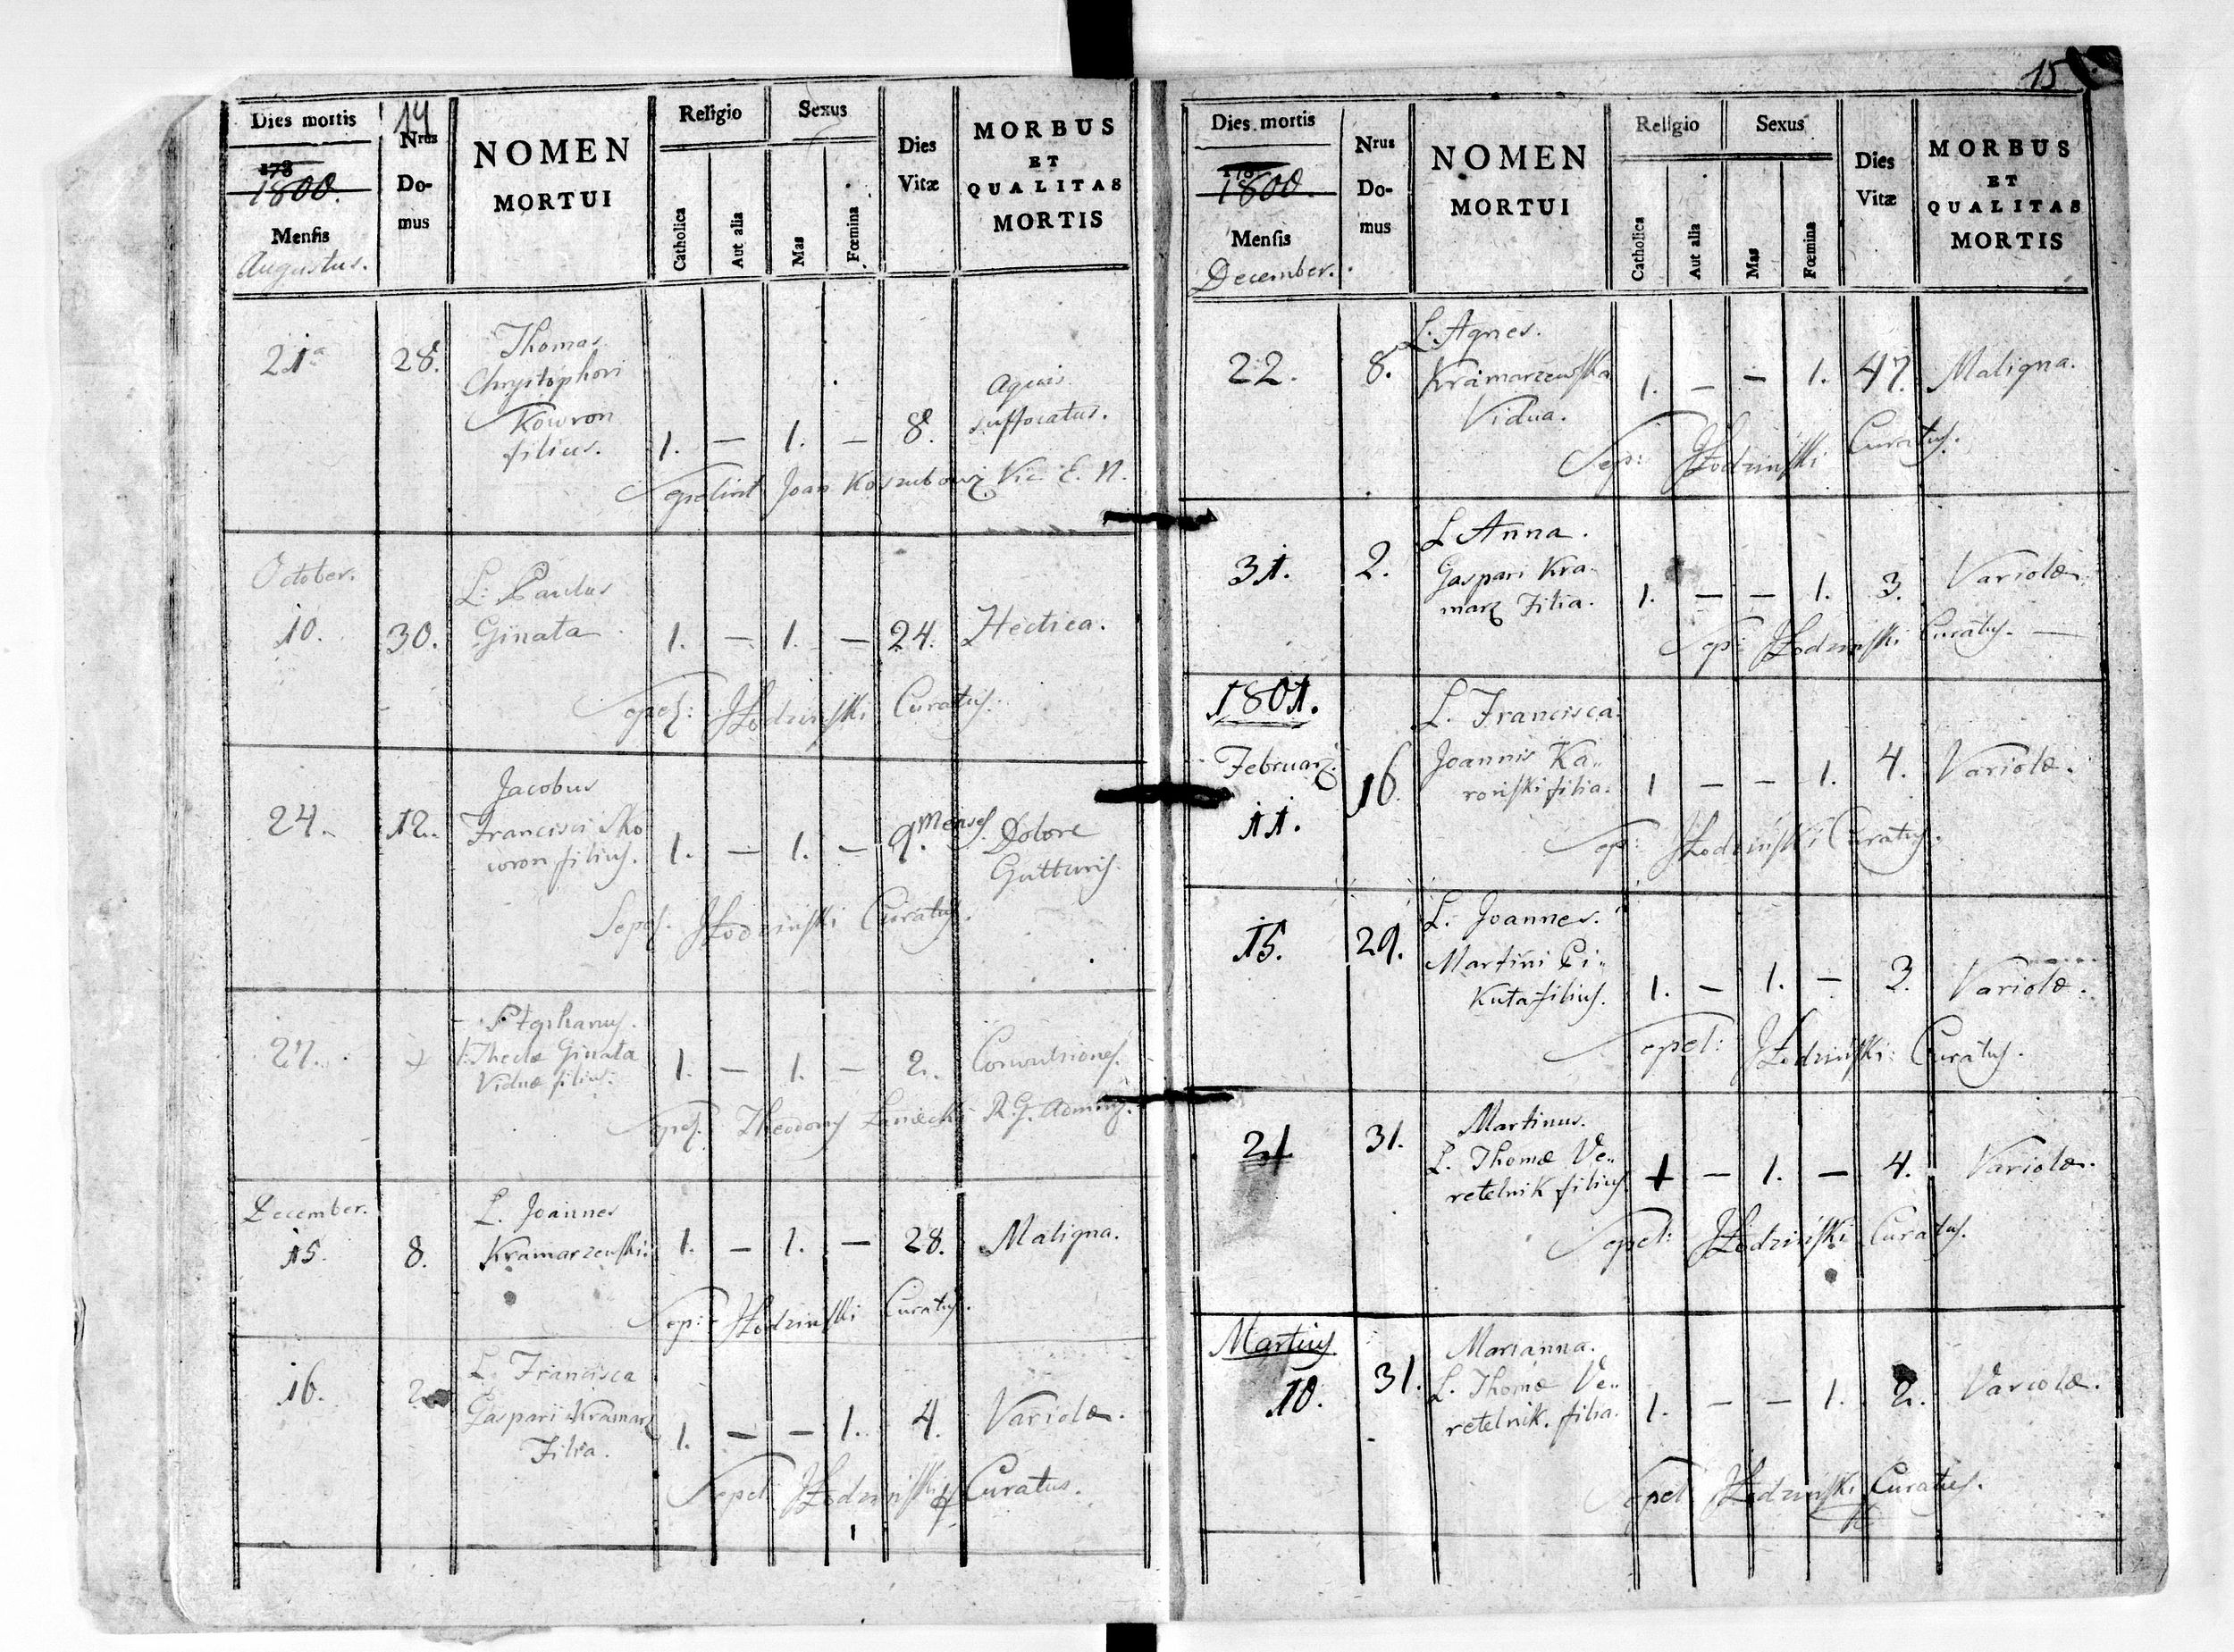 14
Dies mortis
178
1800.
Mensis
Augustus.
Nrus
Do-
mus
NOMEN
MORTUI
Religio
Catholica
Aut alia
Sexus
Mas
Fœmina
Dies
Vitæ
MORBUS
ET
QUALITAS
MORTIS
21a 28. Thomas
Chrystophori
Kowron
filius. 1. — 1. — 8. aquis
suffocatus.
Sepelivit Joan Koszubowz Vic: E. N.
October.
10. 30. L: Paulus
Ginata 1. — 1. — 24. Hectica.
Sepel: JŁodzinski Curatus.
24. 12. Jacobus
Francisci Sko
woron filius. 1. — 1. — 9. Menses Dolore
Gutturis.
Sepel. JŁodzinski Curatus.
27. Stephanus.
Theclæ Ginata
Viduæ filius. 1. — 1. — 2. Convulsiones.
Sepel. R.G.
December.
15. 8. L. Joannes
Kramarzewski. 1. — 1. — 28. Maligna.
Sep: JŁodzinski Curatus.
16. 2. L. Francisca
Gaspari Kramarz
Filia. 1. — — 1. 4. Variolæ.
Sepel JŁodzinski Curatus.
15
Dies mortis
178
1800.
Mensis
December.
Nrus
Do-
mus
NOMEN
MORTUI
Religio
Catholica
Aut alia
Sexus
Mas
Fœmina
Dies
Vitæ
MORBUS
ET
QUALITAS
MORTIS
22. 8. L. Agnes.
Kramarzewska
Vidua. 1. — — 1. 47. Maligna.
Sep: JŁodzinski Curatus.
31. 2. L Anna.
Gaspari Kra-
marz Filia. 1. — — 1. 3. Variolæ.
Sep: JŁodzinski Curatus. —
1801.
Februarz.
11. 16. L. Francisca.
Joannis Ka..
ronski filia. 1 — — 1. 4. Variolæ.
Sep: JŁodzinski Curatus.
15. 29. L. Joannes.
Martini Pi..
kuta filius. 1. — 1. — 3. Variolæ.
Sepel: JŁodzinski: Curatus.
21 31. Martinus.
L. Thomæ We..
retelnik filius. 1 — 1. — 4. Variolæ.
Sepel: JŁodzinski Curatus.
Martius
10. 31. Marianna.
L. Thomæ We..
retelnik. filia. 1. — — 1. 2. Variolæ.
Sepel JŁodzinski Curatus.